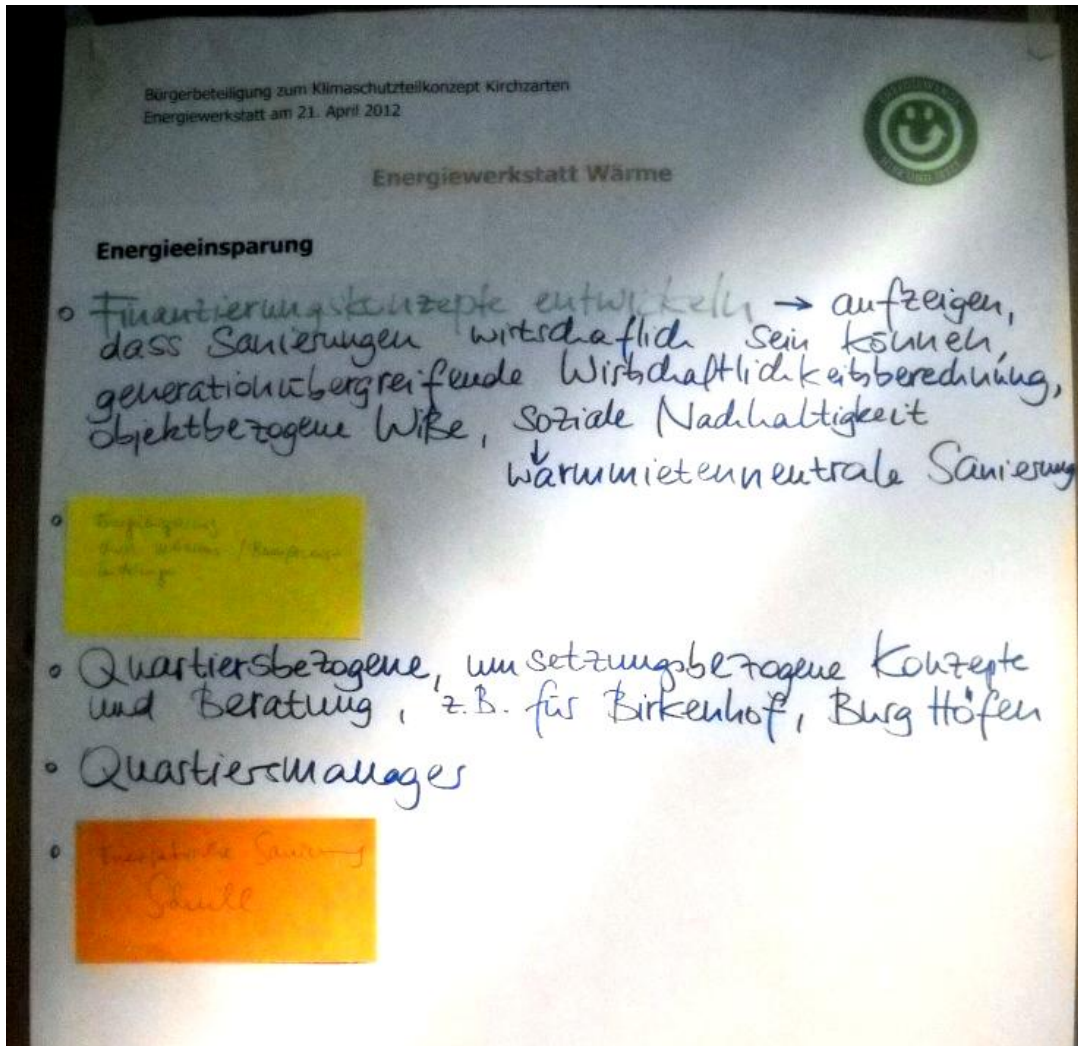 Bürgerbeteiligung zum Klimaschutzteilkonzept Kirchzarten
Energiewerkstatt am 21. April 2012
Energiewerkstatt Wärme
Energieeinsparung
Finanzierungskonzepte entwickeln → aufzeigen,
dass Sanierungen wirtschaflich sein können,
generationübergreifende Wirtschaftlichkeitsberechnung,
objektbezogene WiBe, soziale Nachhaltigkeit
↓
warmmietenneutrale Sanierung
Quartiersbezogene, umsetzungsbezogene Konzepte
und Beratung, z.B. für Birkenhof, Burg Höfen
Quartiersmanager
Energetische Sanierung
Schule